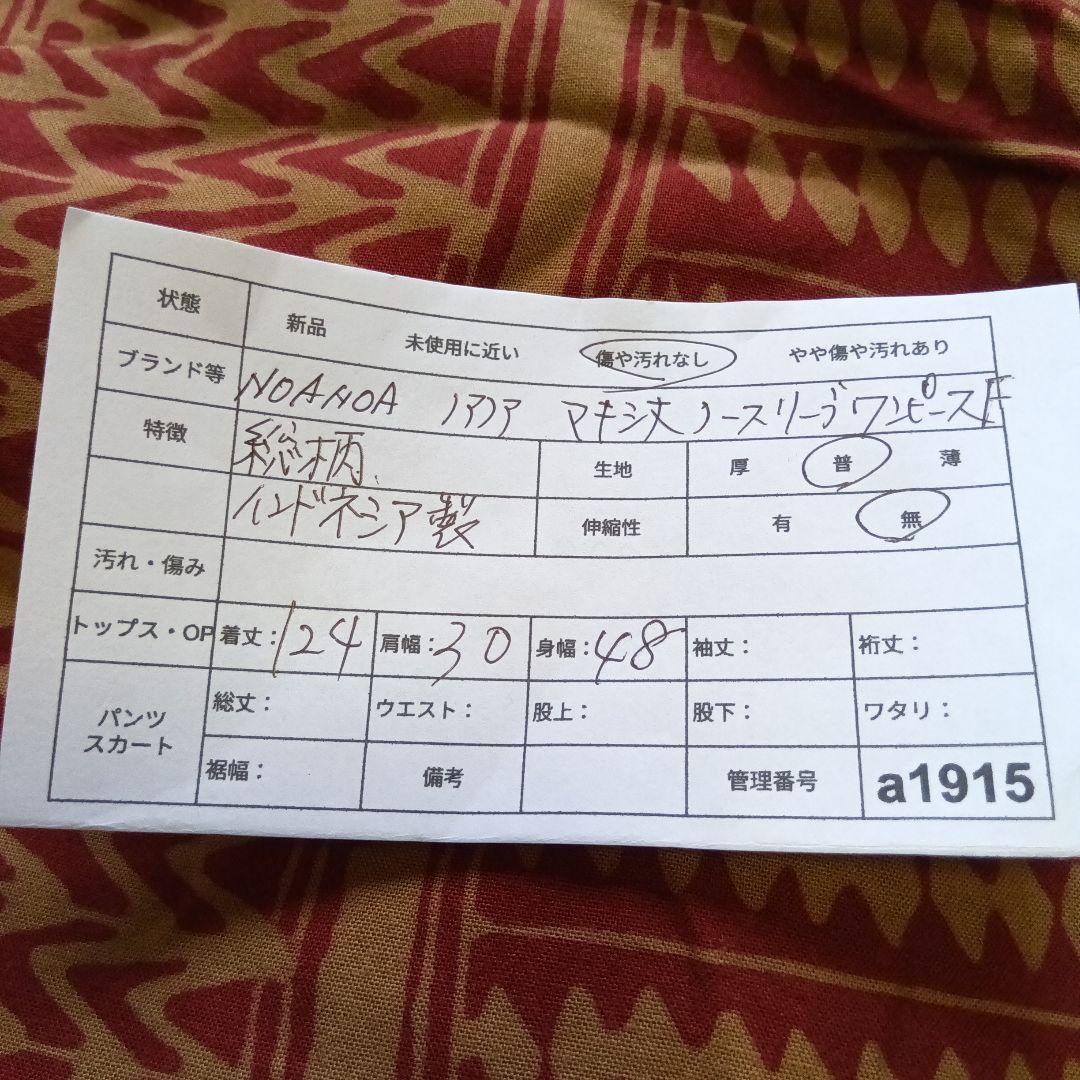 状態 新品 未使用に近い 傷や汚れなし やや傷や汚れあり
ブランド等 NOANOA ノアノア マキシ丈ノースリーブワンピースF
特徴 総柄、 生地 厚 普 薄
インドネシア製 伸縮性 有 無
汚れ・傷み
トップス・OP 着丈：124 肩幅：30 身幅：48 袖丈： 裄丈：
パンツ スカート 総丈： ウエスト： 股上： 股下： ワタリ：
裾幅： 備考 管理番号 a1915